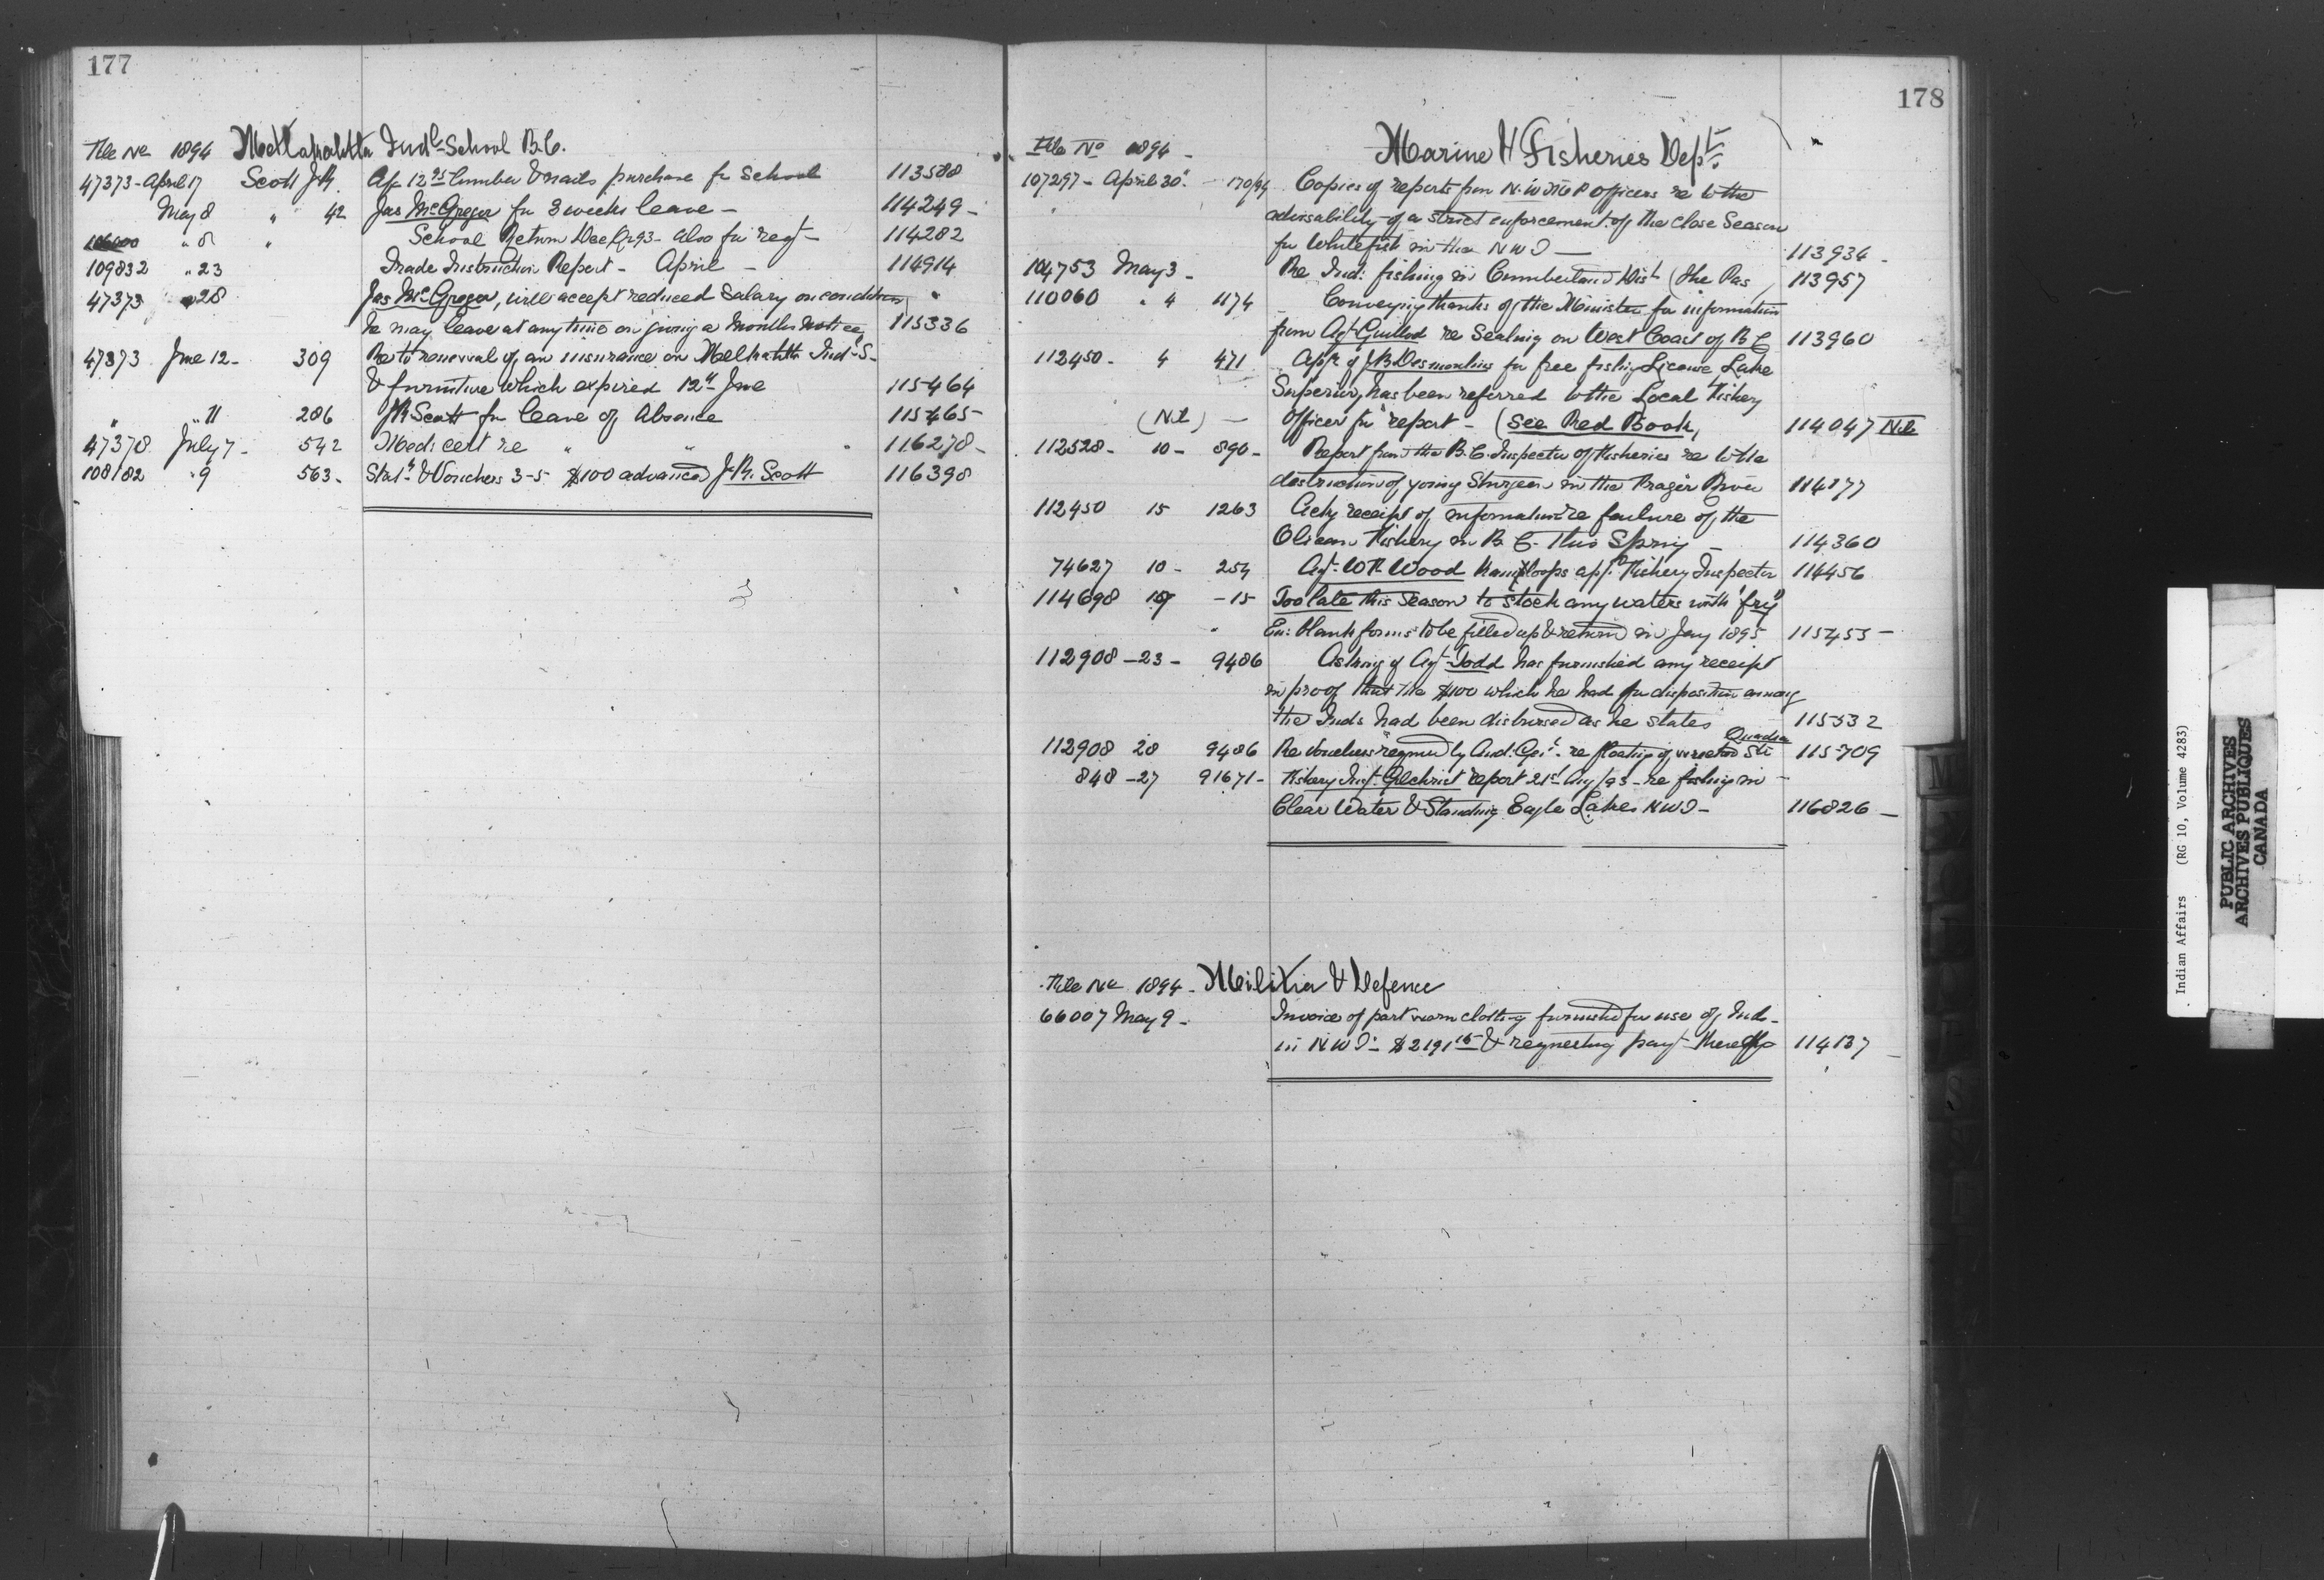 177
File No 1894 Metlakahtla Indl School B.C.
47373 - April 17 Scott J.R. Ap 12.95 lumber & nails purchase for School 113588
May 8 " 42 Jas McGregor for 3 weeks leave - 114249 -
" 8 " School Return Dec Qr 93 - also for reqt - 114282
109832 " 23 Trade Instruction Report - April - 114914
47373 " 28 Jas McGregor, will accept reduced Salary on condition
he may leave at any time on giving a months notice 115336
47373 June 12 - 309 Re to renewal of an insurance on Metlakahtla Indl S-
& furniture which expired 12th June 115464
" " 11 286 JR Scott for leave of Absence 115465
47378 July 7 - 542 Medi cert re " " " 116278 -
108182 " 9 563 - Stat & Vouchers 3-5 $100 advanced J.R. Scott 116398
178
File No 1894 - Marine & Fisheries Dept.
107297 - April 30 - 170/94 Copies of reports from N.W.M.P Officers re to the
advisability of a strict enforcement of the Close Season
for Whitefish in the NWT - 113936 -
104753 May 3 - Re Ind: fishing in Cumberland Dist (the Pas 113957
110060 " 4 1174 Conveying thanks of the Minister for information
from Agt Guillod re Sealing on West Coast of B C 113960
112450 - 4 471 App. of J.B. Desmoulins for free fishing License Lake
Superior, has been referred to the Local Fishery
(N.L) - Officer for report - (See Red Book, 114047 N.L
112528 - 10 - 890 - Report from the B.C. Inspector of Fisheries re to the
destruction of young Sturgeon in the Frazer River 114177
112450 15 1263 Ackg receipt of information re failure of the
Olicean Fishery in B.C. this Spring - 114360
74627 10 - 254 Agt. W R Wood Kamloops apt. Fishery Inspector 114456
114698 19 - 15 Too late this season to stock any waters with "fry"
En: blank forms to be filled up & return in Jany 1895 115453 -
112908 - 23 - 9486 Asking if Agt Todd has furnished any receipt
in proof that the $100 which he had for disposition among
the Inds had been disbursed as he states 115532
Quadra
112908 28 9486 Re Vouchers required by Aud: Genl - re floating of 115709
848 - 27 91671 - Fishery Inspt. Gilchrist report 21st Aug/93 - re fishing in -
Clear Water & Standing Eagle Lakes NWT - 116826 -
File No 1894 - Militia & Defence
66007 May 9 - Invoice of part worn clothing furnished for use of Inds -
in NWT - $2191.15 & requesting payt thereof 114137
Indian Affairs (RG 10, Volume 4283)
PUBLIC ARCHIVES
ARCHIVES PUBLIQUES
CANADA